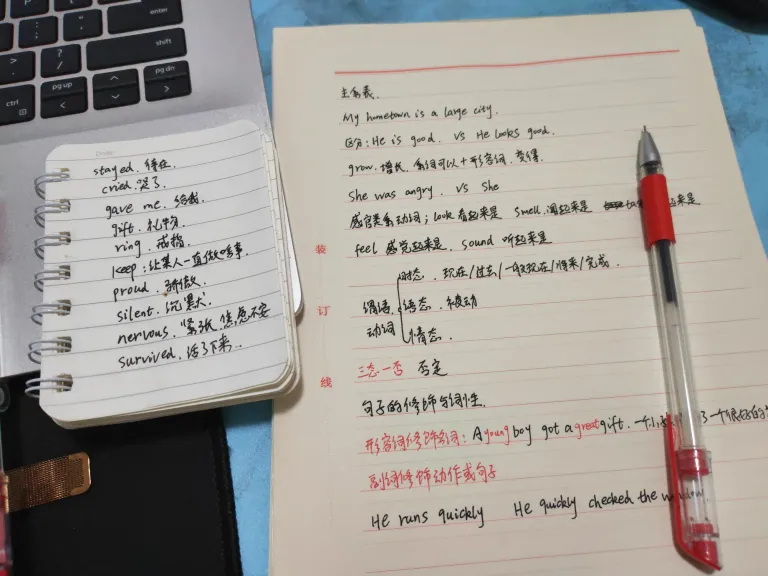 shift
ctrl
pg up
pg dn
Date:
stayed. 待在.
cried. 哭了.
gave me. 给我
gift. 礼物.
ring. 戒指.
keep: 让某人一直做啥事.
proud. 骄傲.
silent. 沉默
nervous. 紧张, 焦虑不安
survived. 活了下来.
主系表.
My hometown is a large city.
区分: He is good. vs He looks good.
grow. 增长, 系词可以+形容词. 变得.
She was angry. vs She
感官类系动词; look 看起来是 smell. 闻起来是 起来是
feel 感觉起来是. sound 听起来是
时态. 现在/过去/一般现在/将来/完成.
谓语 语态. 被动
动词 情态.
三态一否 否定
句子的修饰与词性.
形容词修饰名词: A young boy got a great gift. 一个小 了一个很好的
副词修饰动作或句子
He runs quickly He quickly checked the
装
订
线